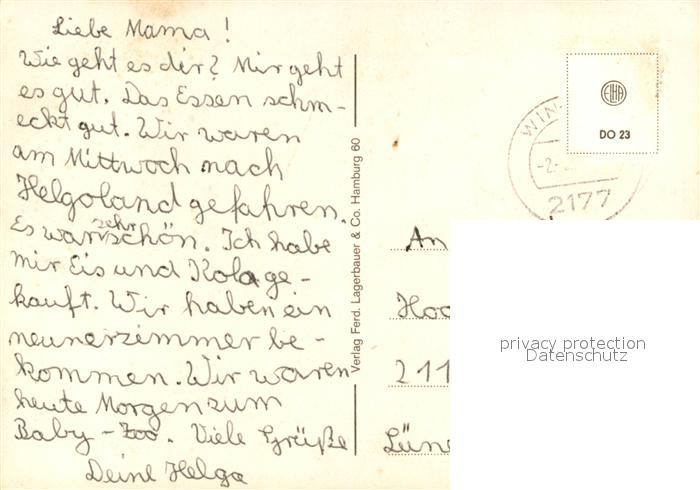 Liebe Mama!
Wie geht es dir? Mir geht
es gut. Das Essen schm-
eckt gut. Wir waren
am Mittwoch nach
Helgoland gefahren.
Es war sehr schön. Ich habe
mir Eis und Kola ge-
kauft. Wir haben ein
neunerzimmer be-
kommen. Wir waren
heute Morgen zum
Baby-Zoo. Viele Grüße
Deine Helga
Verlag Ferd. Lagerbauer & Co. Hamburg 60
ELHA
DO 23
WIN
-2.
2177
An
Hoc
211
Lüne
privacy protection
Datenschutz